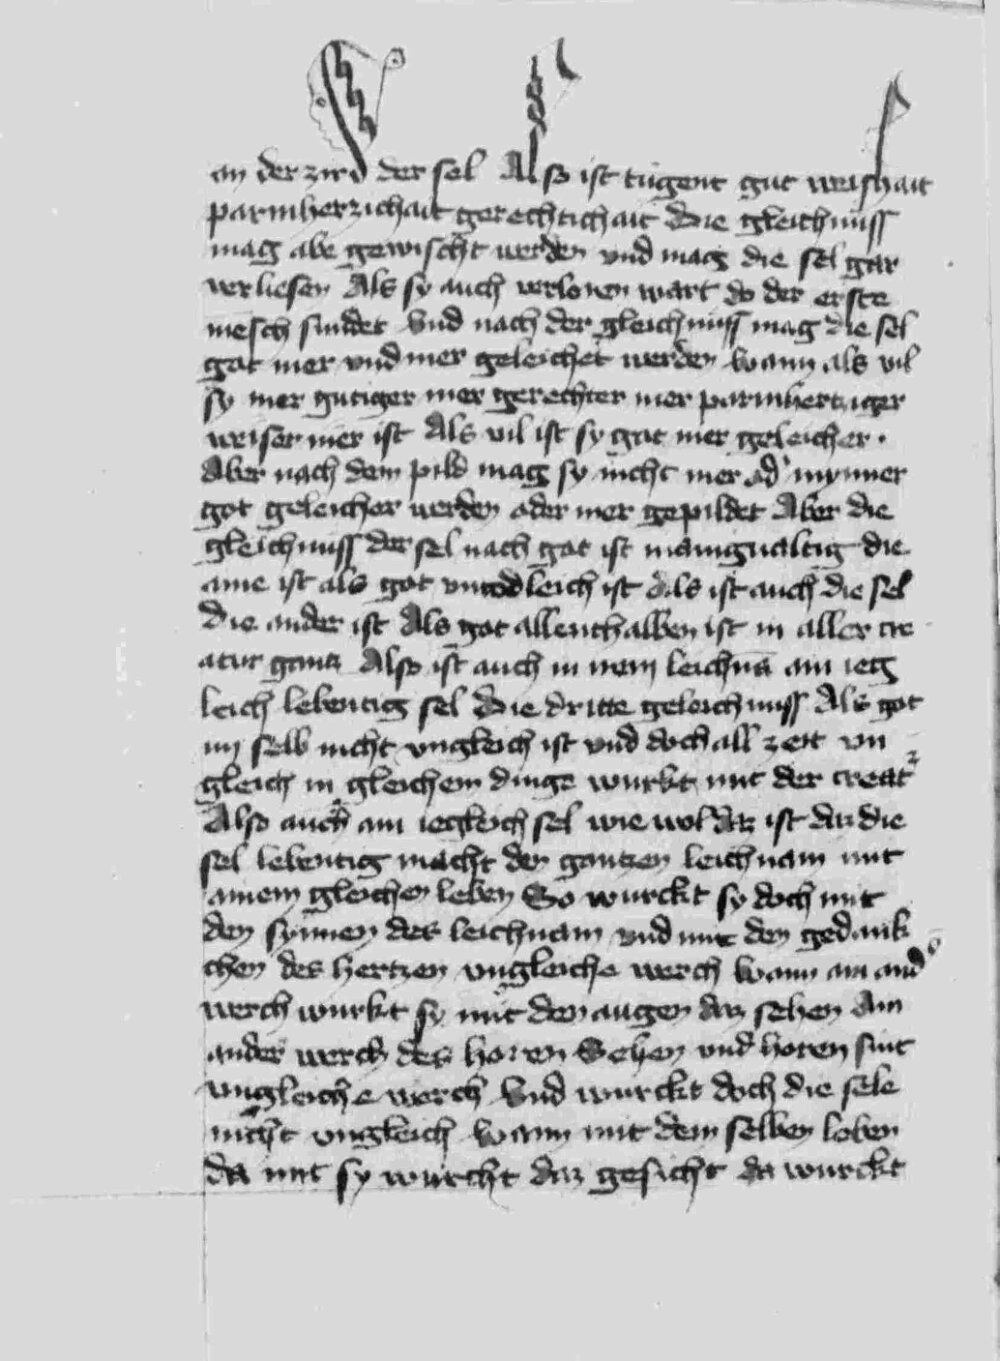 an der zird der sel Also ist tugent gut weishait
parmherzichait gerechtichait Die gleichnuss
mag abe gewischt werden vnd mag die sel gar
verliesen Als sy auch verloren wart do der erste
mesch sundet Vnd nach der gleichnuss mag die sel
got mer vnd mer geleichet werden Wann als vil
sy mer gutiger mer gerechter mer parmhertziger
weiser mer ist Als vil ist sy got mer geleicher.
Aber nach dem pild mag sy nicht mer od' mynner
got geleicher werden oder mer gepildet Aber die
gleichnuss der sel nach got ist manigualtig die
aine ist als got vntodleich ist Als ist auch die sel
Die ander ist Als got allenthalben ist in aller cre
atur gantz Also ist auch in irem leichnā ain ieg
leich lebentig sel Die dritte geleichnuss Als got
im selb nicht vngleich ist vnd doch all zeit vn
gleich in gleichem dinge wurkt mit der creat'
Also auch ain iegleich sel wie wol daz ist daz die
sel lebentig macht den gantzen leichnam mit
ainem gleichen leben So wurckt sy doch mit
den synnen des leichnam vnd mit den gedank
chen des hertzen vngleiche werch Wann ain and'
werch wurkt sy mit den augen daz sehen Ain
ander werch des horen Sehen vnd horen sint
vngleiche werch Vnd wurckt doch die sele
nicht vngleich Wann mit dem selben leben
da mit sy wurcht daz gesicht da wurckt